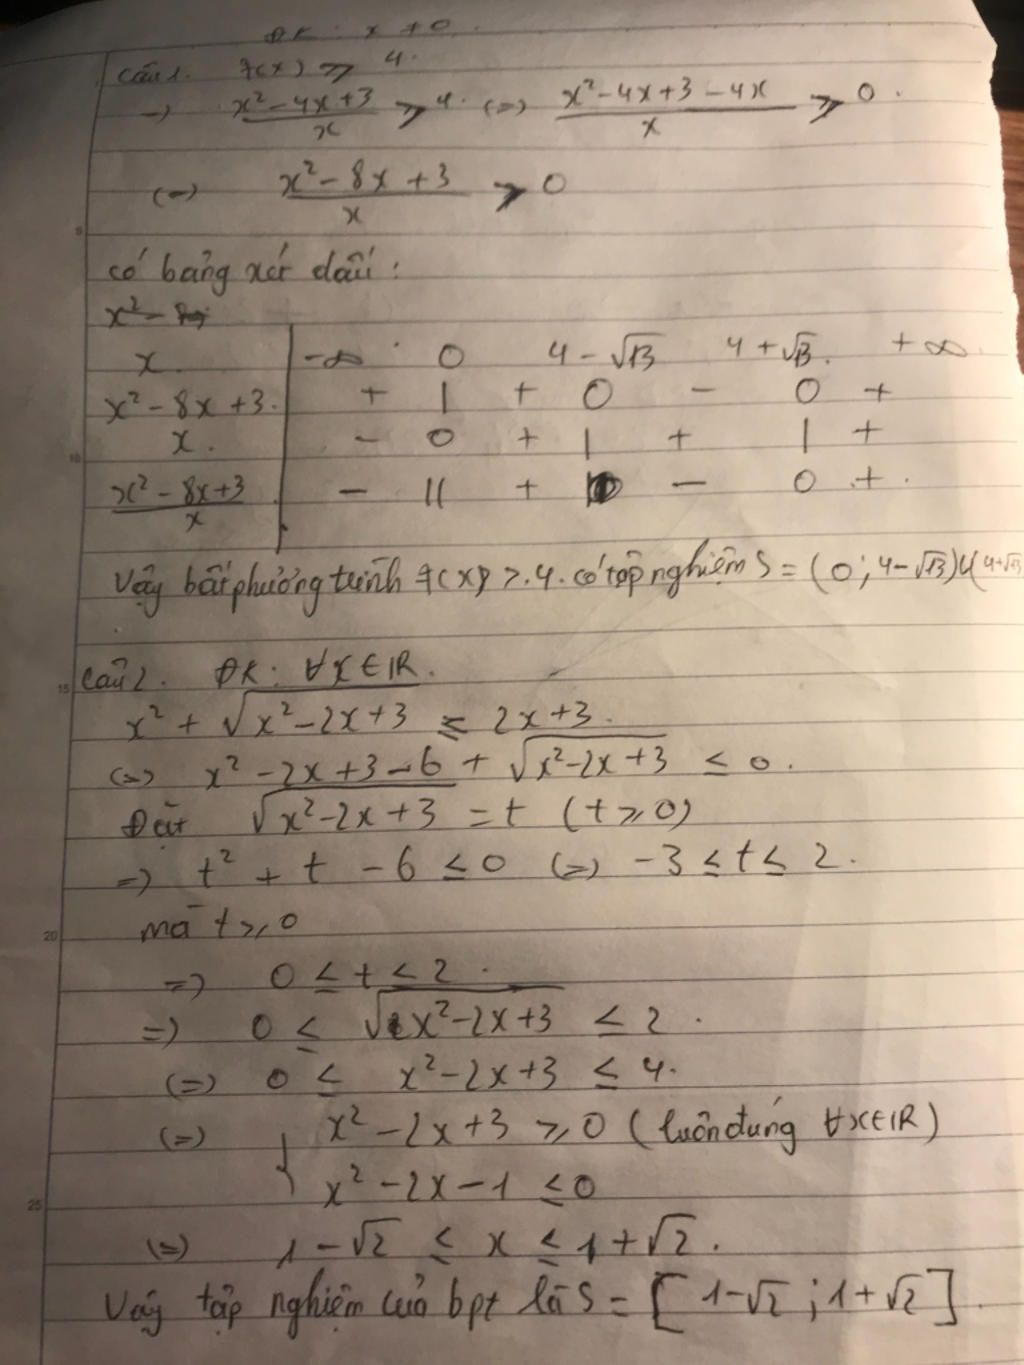 ĐK: x ≠ 0.
Câu 1. f(x) ⩾ 4.
→ (x² - 4x + 3)/x ⩾ 4. (=) (x² - 4x + 3 - 4x)/x ⩾ 0.
(=) (x² - 8x + 3)/x ⩾ 0
có bảng xét dấu:
x² - 8x
x. | -∞ 0 4 - √13 4 + √13. +∞
x² - 8x + 3. | + | + 0 - 0 +
x. | - 0 + | + | +
(x² - 8x + 3)/x | - || + 0 - 0 + .
Vậy bất phương trình f(x) ⩾ 4. có tập nghiệm S = (0; 4-√13)∪(4+√13
Câu 2. ĐK: ∀x∈IR.
x² + √(x² - 2x + 3) ⩽ 2x + 3.
(=) x² - 2x + 3 - 6 + √(x² - 2x + 3) ≤ 0.
Đặt √(x² - 2x + 3) = t (t ⩾ 0)
=) t² + t - 6 ≤ 0 (=) -3 ≤ t ≤ 2.
mà t ⩾ 0
=) 0 ≤ t ≤ 2.
=) 0 ≤ √(x² - 2x + 3) ≤ 2.
(=) 0 ≤ x² - 2x + 3 ≤ 4.
(=) { x² - 2x + 3 ⩾ 0 (luôn đúng ∀x∈IR)
x² - 2x - 1 ≤ 0
(=) 1 - √2 ≤ x ≤ 1 + √2.
Vậy tập nghiệm của bpt là S = [1-√2; 1+√2].
5
10
15
20
25